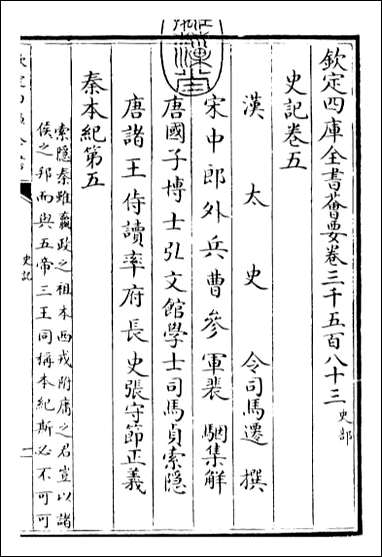 欽定四庫全書薈要卷三千五百八十三 史部
史記卷五
漢太史令司馬遷撰
宋中郎外兵曹參軍裴駰集解
唐國子博士弘文館學士司馬貞索隱
唐諸王侍讀率府長史張守節正義
秦本紀第五
索隱秦雖嬴政之祖本西戎附庸之君豈以諸
侯之邦而與五帝三王同稱本紀斯必不可可
史記
一